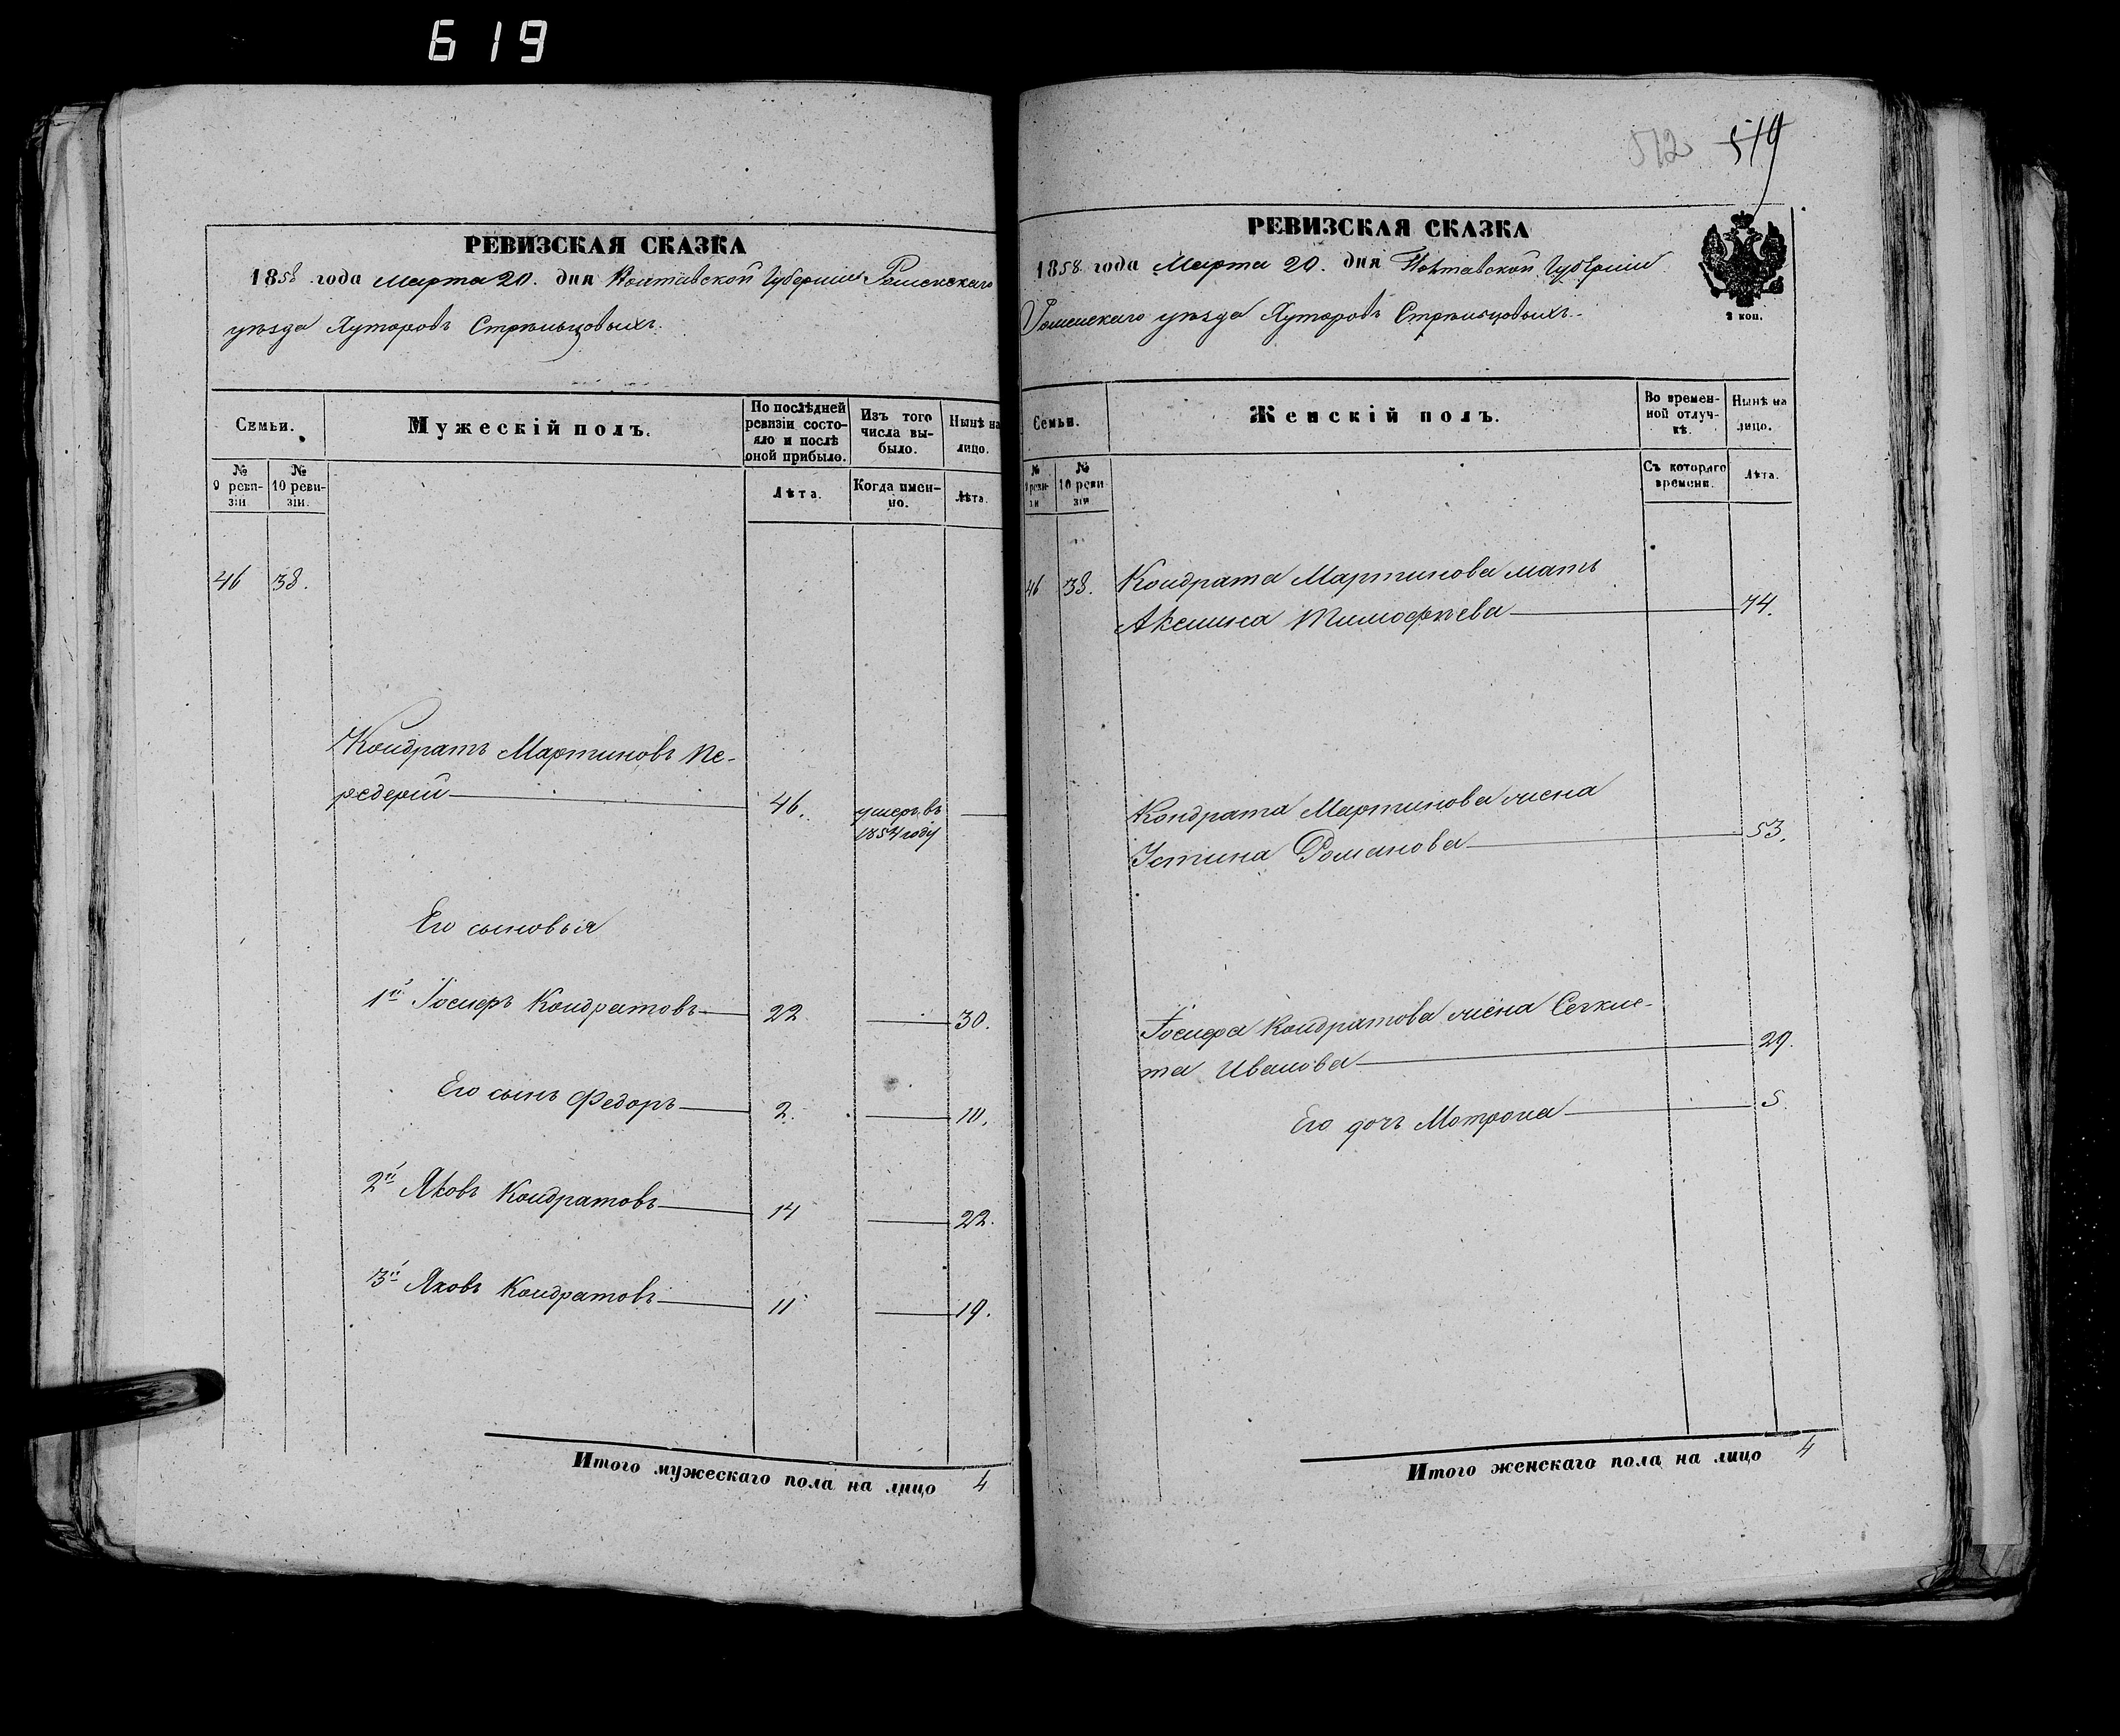 619
РЕВИЗСКАЯ СКАЗКА
1858 года Марта 20. дня Полтавской Губернии Роменскаго
уѣзда Хуторовъ Стрѣльцовыхъ.
Семьи.
Мужескій полъ.
По послѣдней ревизіи состояло и послѣ оной прибыло.
Изъ того числа выбыло.
Нынѣ на лицо.
№ 9 ревизіи
№ 10 ревизіи.
Лѣта.
Когда именно.
Лѣта.
46 38.
Кондратъ Мартиновъ Пе-
редерій 46. умеръ въ
1854 году
Его сыновья
1й Іосифъ Кондратовъ 22 30.
Его сынъ Федоръ 2. 10.
2й Яковъ Кондратовъ 14 22.
3й Яковъ Кондратовъ 11 19.
Итого мужескаго пола на лицо 4
512 519
РЕВИЗСКАЯ СКАЗКА
1858 года Марта 20. дня Полтавской Губерніи
Роменскаго уѣзда Хуторовъ Стрѣльцовыхъ.
2 коп.
Семьи.
Женскій полъ.
Во временной отлучкѣ.
Нынѣ на лицо.
№ 9 ревизіи
№ 10 ревизіи
Съ котораго времени.
Лѣта.
46 38. Кондрата Мартинова мать
Аксинья Тимофѣева 74.
Кондрата Мартинова жена
Устина Романова 53.
Іосифа Кондратова жена Секле-
та Иванова 29.
Его дочь Мотрона 5.
Итого женскаго пола на лицо 4